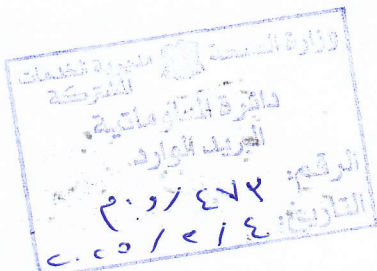 وزارة الصحة مديرية الخدمات
المشتركة
دائرة المعلوماتية
البريد الوارد
الرقم: ٤٧٣ / و.م
التاريخ: ٤ / ٢ / ٢٠٢٥